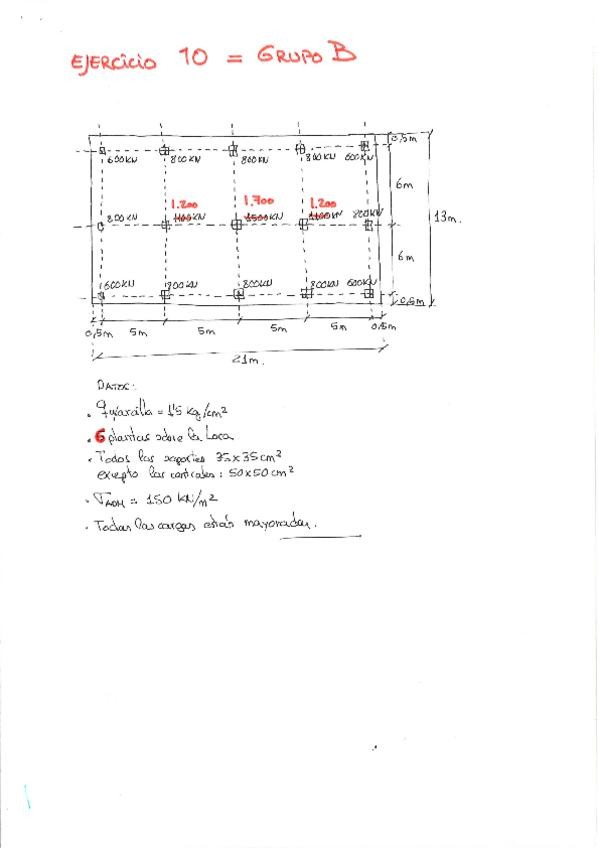 EJERCICIO 10 = GRUPO B
0,5m
600KN 800KN 800KN 800KN 600KN
6m
1.200 1.700 1.200
800KN 1100KN 1500KN 1100KN 800KN
13m.
6m
600KN 800KN 800KN 800KN 600KN
0,5m
0,5m 5m 5m 5m 5m 0,5m
21m.
DATOS:
. = 1'5 kg/cm²
. 6 plantas sobre la Losa
. Todos los soportes 35x35cm²
excepto los centrales: 50x50cm²
. σADM = 150 KN/m²
. Todas las cargas están mayoradas.